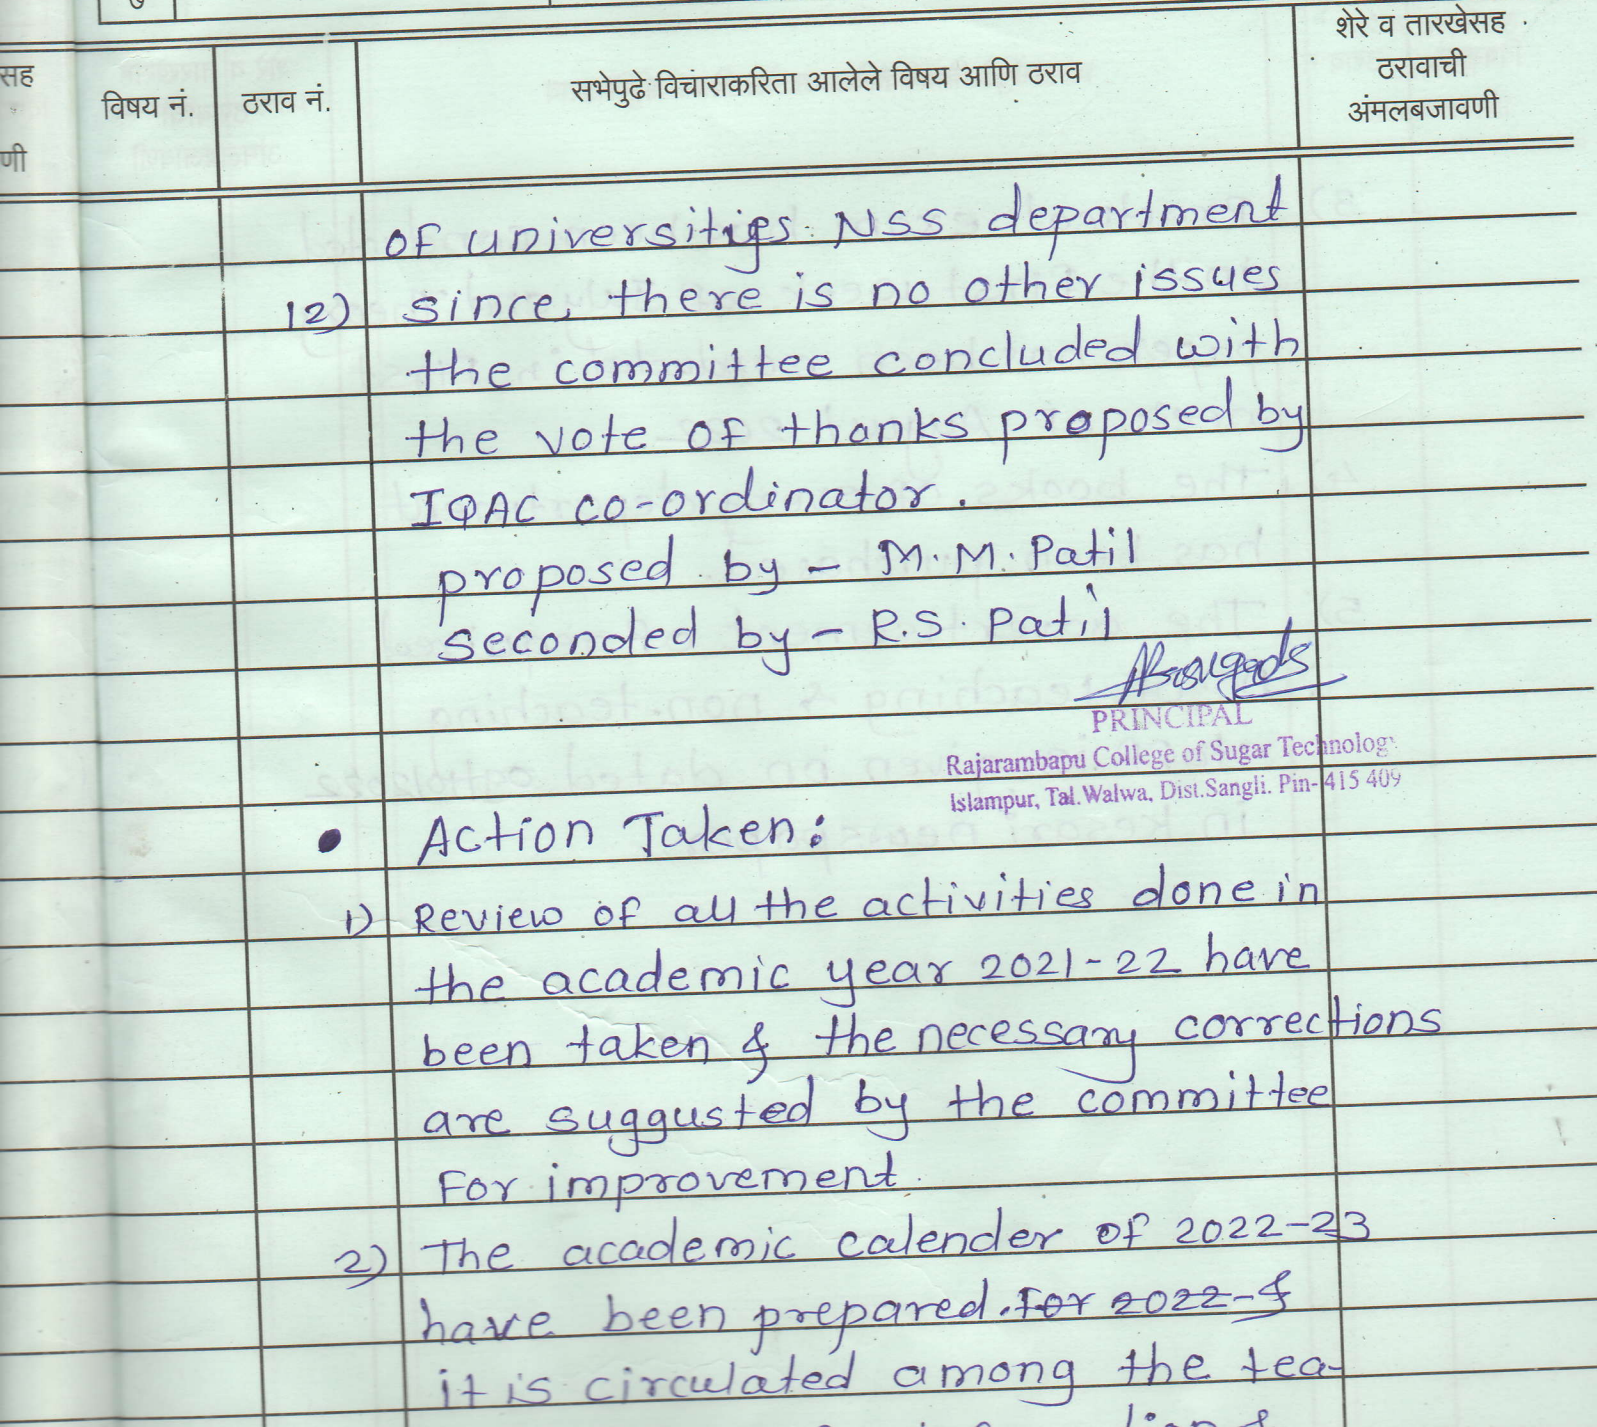 ७
सह
णी
विषय नं.
ठराव नं.
सभेपुढे विचाराकरिता आलेले विषय आणि ठराव
शेरे व तारखेसह
ठरावाची
अंमलबजावणी
of universities NSS department
12) since, there is no other issues
the committee concluded with
the vote of thanks proposed by
IQAC co-ordinator.
proposed by - M. M. Patil
seconded by - R.S. Patil
PRINCIPAL
Rajarambapu College of Sugar Technology
Islampur, Tal.Walwa, Dist.Sangli. Pin-415 409
• Action Taken:
1) Review of all the activities done in
the academic year 2021-22 have
been taken & the necessary corrections
are suggusted by the committee
For improvement.
2) The academic calender of 2022-23
have been prepared. For 2022- &
it is circulated among the tea-